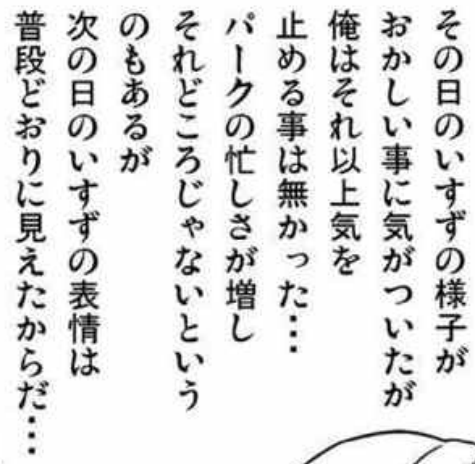 その日のいすずの様子が
おかしい事に気がついたが
俺はそれ以上気を
止める事は無かった…
パークの忙しさが増し
それどころじゃないという
のもあるが
次の日のいすずの表情は
普段どおりに見えたからだ…